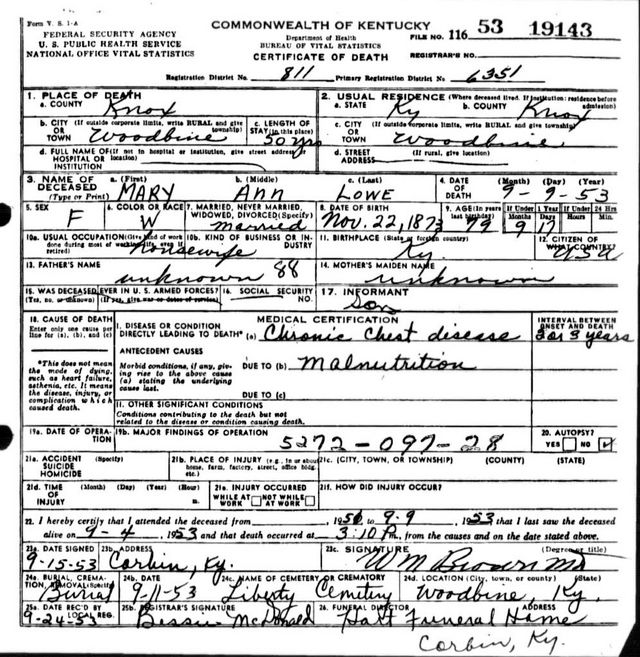 Form V. S. 1-A
FEDERAL SECURITY AGENCY
U. S. PUBLIC HEALTH SERVICE
NATIONAL OFFICE VITAL STATISTICS
COMMONWEALTH OF KENTUCKY
Department of Health
BUREAU OF VITAL STATISTICS
CERTIFICATE OF DEATH
FILE NO. 116 53 19143
REGISTRAR'S NO.
Registration District No. 811 Primary Registration District No. 6351
1. PLACE OF DEATH
a. COUNTY Knox
2. USUAL RESIDENCE (Where deceased lived. If institution: residence before admission)
a. STATE Ky b. COUNTY Knox
b. CITY (If outside corporate limits, write RURAL and give township) OR TOWN Woodbine
c. LENGTH OF STAY (in this place) 50 yrs
c. CITY (If outside corporate limits, write RURAL and give township) OR TOWN Woodbine
d. FULL NAME OF (If not in hospital or institution, give street address or location) HOSPITAL OR INSTITUTION
d. STREET ADDRESS (If rural, give location)
3. NAME OF DECEASED (Type or Print)
a. (First) MARY b. (Middle) ANN c. (Last) LOWE
4. DATE OF DEATH (Month) (Day) (Year) 9-9-53
5. SEX F
6. COLOR OR RACE W
7. MARRIED, NEVER MARRIED, WIDOWED, DIVORCED (Specify) married
8. DATE OF BIRTH Nov. 22, 1873
9. AGE (In years last birthday) 79 If Under 1 Year 9 17 If Under 24 Hrs
10a. USUAL OCCUPATION (Give kind of work done during most of working life, even if retired) Housewife
10b. KIND OF BUSINESS OR INDUSTRY
11. BIRTHPLACE (State or foreign country) Ky.
12. CITIZEN OF WHAT COUNTRY? USA
13. FATHER'S NAME unknown 88
14. MOTHER'S MAIDEN NAME unknown
15. WAS DECEASED EVER IN U. S. ARMED FORCES? (Yes, no, or unknown) (If yes, give war or dates of service)
16. SOCIAL SECURITY NO.
17. INFORMANT Son
18. CAUSE OF DEATH
Enter only one cause per line for (a), (b), and (c)
*This does not mean the mode of dying, such as heart failure, asthenia, etc. It means the disease, injury, or complication which caused death.
MEDICAL CERTIFICATION
I. DISEASE OR CONDITION DIRECTLY LEADING TO DEATH* (a) Chronic Chest disease
INTERVAL BETWEEN ONSET AND DEATH 2 or 3 years
ANTECEDENT CAUSES
Morbid conditions, if any, giving rise to the above cause (a) stating the underlying cause last.
DUE TO (b) Malnutrition
DUE TO (c)
II. OTHER SIGNIFICANT CONDITIONS
Conditions contributing to the death but not related to the disease or condition causing death.
19a. DATE OF OPERATION
19b. MAJOR FINDINGS OF OPERATION
5272-097-28
20. AUTOPSY? YES NO
21a. ACCIDENT SUICIDE HOMICIDE (Specify)
21b. PLACE OF INJURY (e.g., in or about home, farm, factory, street, office bldg., etc.)
21c. (CITY, TOWN, OR TOWNSHIP) (COUNTY) (STATE)
21d. TIME OF INJURY (Month) (Day) (Year) (Hour) m
21e. INJURY OCCURRED WHILE AT WORK NOT WHILE AT WORK
21f. HOW DID INJURY OCCUR?
22. I hereby certify that I attended the deceased from 1950 to 9-9 1953 that I last saw the deceased
alive on 9-4, 1953 and that death occurred at 3:10 P m, from the causes and on the date stated above.
23a. DATE SIGNED 9-15-53
23b. ADDRESS Corbin, Ky.
23c. SIGNATURE (Degree or title) WM Brown MD
24a. BURIAL, CREMATION, REMOVAL (Specify) Burial
24b. DATE 9-11-53
24c. NAME OF CEMETERY OR CREMATORY Liberty Cemetery
24d. LOCATION (City, town, or county) (State) Woodbine, Ky.
25a. DATE REC'D BY LOCAL REG. 9-24-53
25b. REGISTRAR'S SIGNATURE Bessie McDonald
26. FUNERAL DIRECTOR ADDRESS Hart Funeral Home
Corbin, Ky.